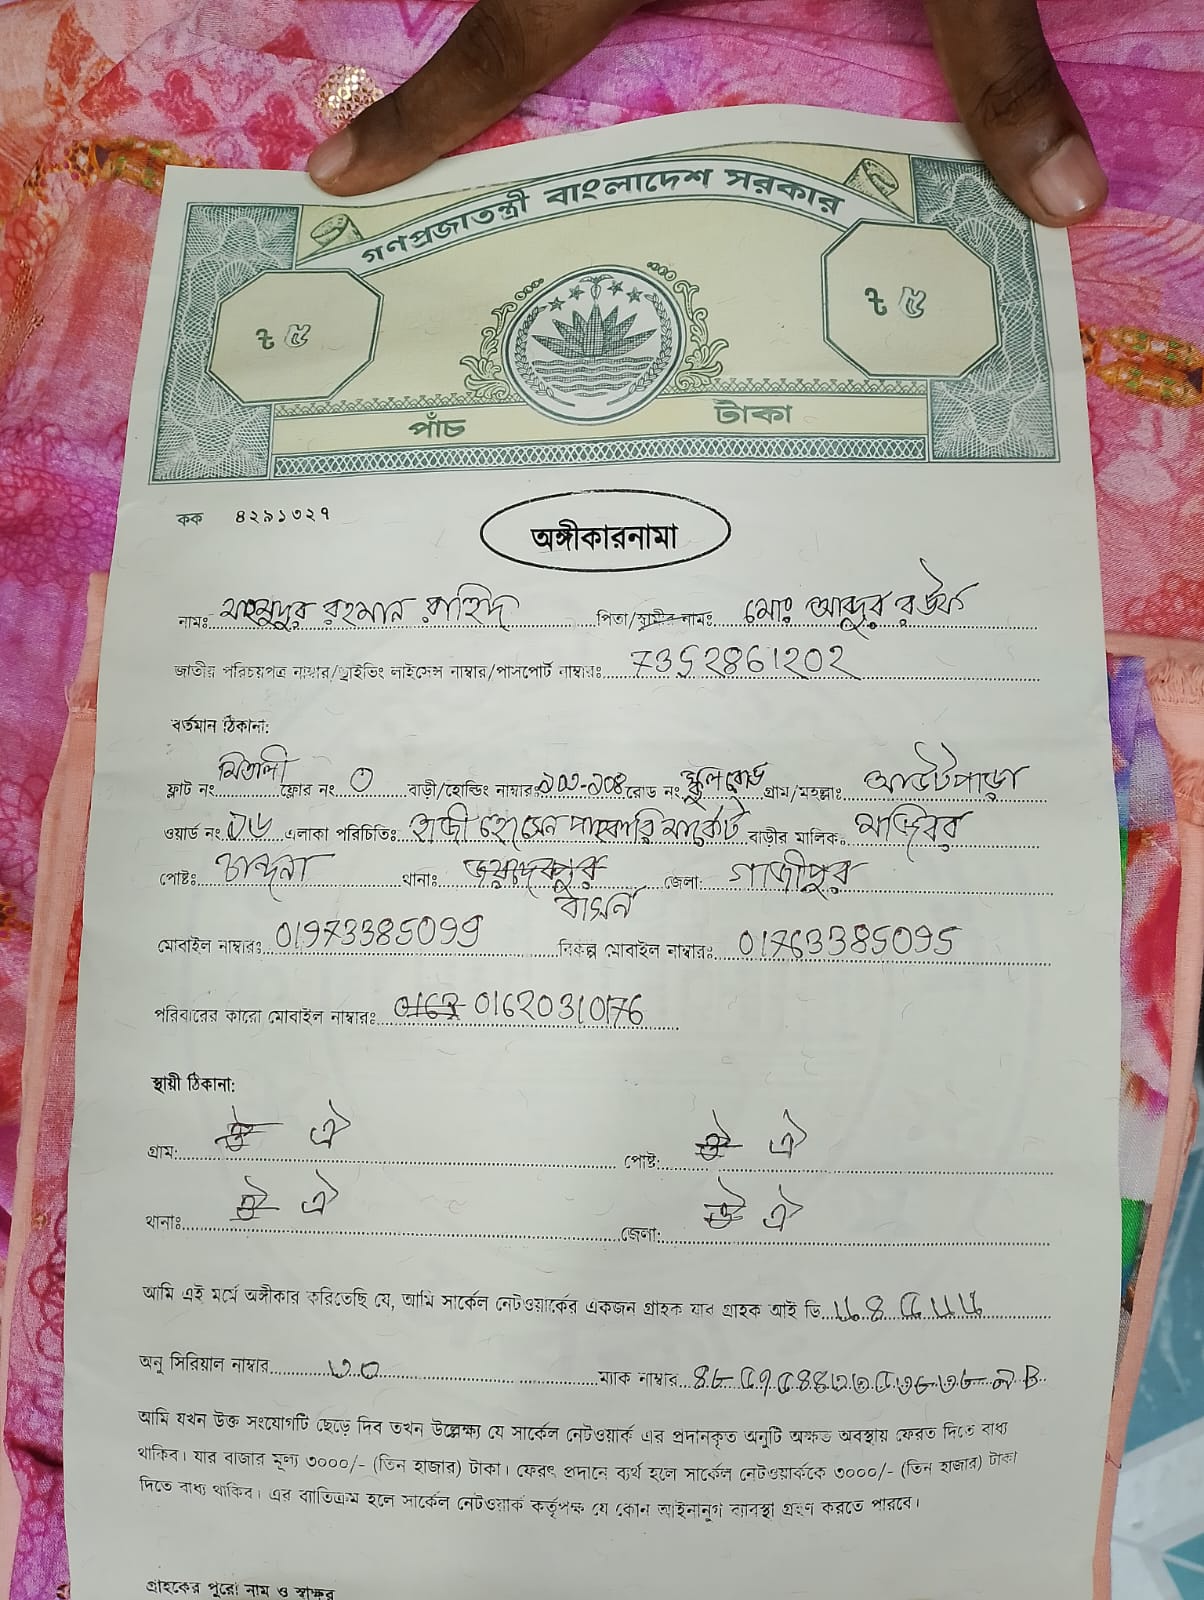 গণপ্রজাতন্ত্রী বাংলাদেশ সরকার
৳ ৫ ৳ ৫
পাঁচ টাকা
কক ৪২৯১৩২৭
অঙ্গীকারনামা
নামঃ মাহমুদুর রহমান রাহিদ পিতা/স্বামীর নামঃ মোঃ আব্দুর রউফ
জাতীয় পরিচয়পত্র নাম্বার/ড্রাইভিং লাইসেন্স নাম্বার/পাসপোর্ট নাম্বারঃ 7352861202
বর্তমান ঠিকানা:
ফ্লাট নং মিতালী ফ্লোর নং ৩ বাড়ী/হোল্ডিং নাম্বারঃ রোড নং গ্রাম/মহল্লাঃ আউটপাড়া
ওয়ার্ড নং ১৬ এলাকা পরিচিতিঃ হাজী হোসেন পাইকারি মার্কেট বাড়ীর মালিক: মজিবর
পোষ্টঃ চান্দনা থানাঃ জয়দেবপুর জেলা: গাজীপুর
বাসন
মোবাইল নাম্বারঃ 01973385099 বিকল্প মোবাইল নাম্বারঃ 01763385095
পরিবারের কারো মোবাইল নাম্বারঃ 01620310176
স্থায়ী ঠিকানা:
গ্রাম: ঐ পোষ্ট: ঐ
থানাঃ ঐ জেলা: ঐ
আমি এই মর্মে অঙ্গীকার করিতেছি যে, আমি সার্কেল নেটওয়ার্কের একজন গ্রাহক যার গ্রাহক আই ডি
অনু সিরিয়াল নাম্বার ৩০ ম্যাক নাম্বার
আমি যখন উক্ত সংযোগটি ছেড়ে দিব তখন উল্লেক্ষ্য যে সার্কেল নেটওয়ার্ক এর প্রদানকৃত অনুটি অক্ষত অবস্থায় ফেরত দিতে বাধ্য
থাকিব। যার বাজার মূল্য ৩০০০/- (তিন হাজার) টাকা। ফেরৎ প্রদানে ব্যর্থ হলে সার্কেল নেটওয়ার্ককে ৩০০০/- (তিন হাজার) টাকা
দিতে বাধ্য থাকিব। এর ব্যতিক্রম হলে সার্কেল নেটওয়ার্ক কর্তৃপক্ষ যে কোন আইনানুগ ব্যাবস্থা গ্রহণ করতে পারবে।
গ্রাহকের পুরো নাম ও স্বাক্ষর